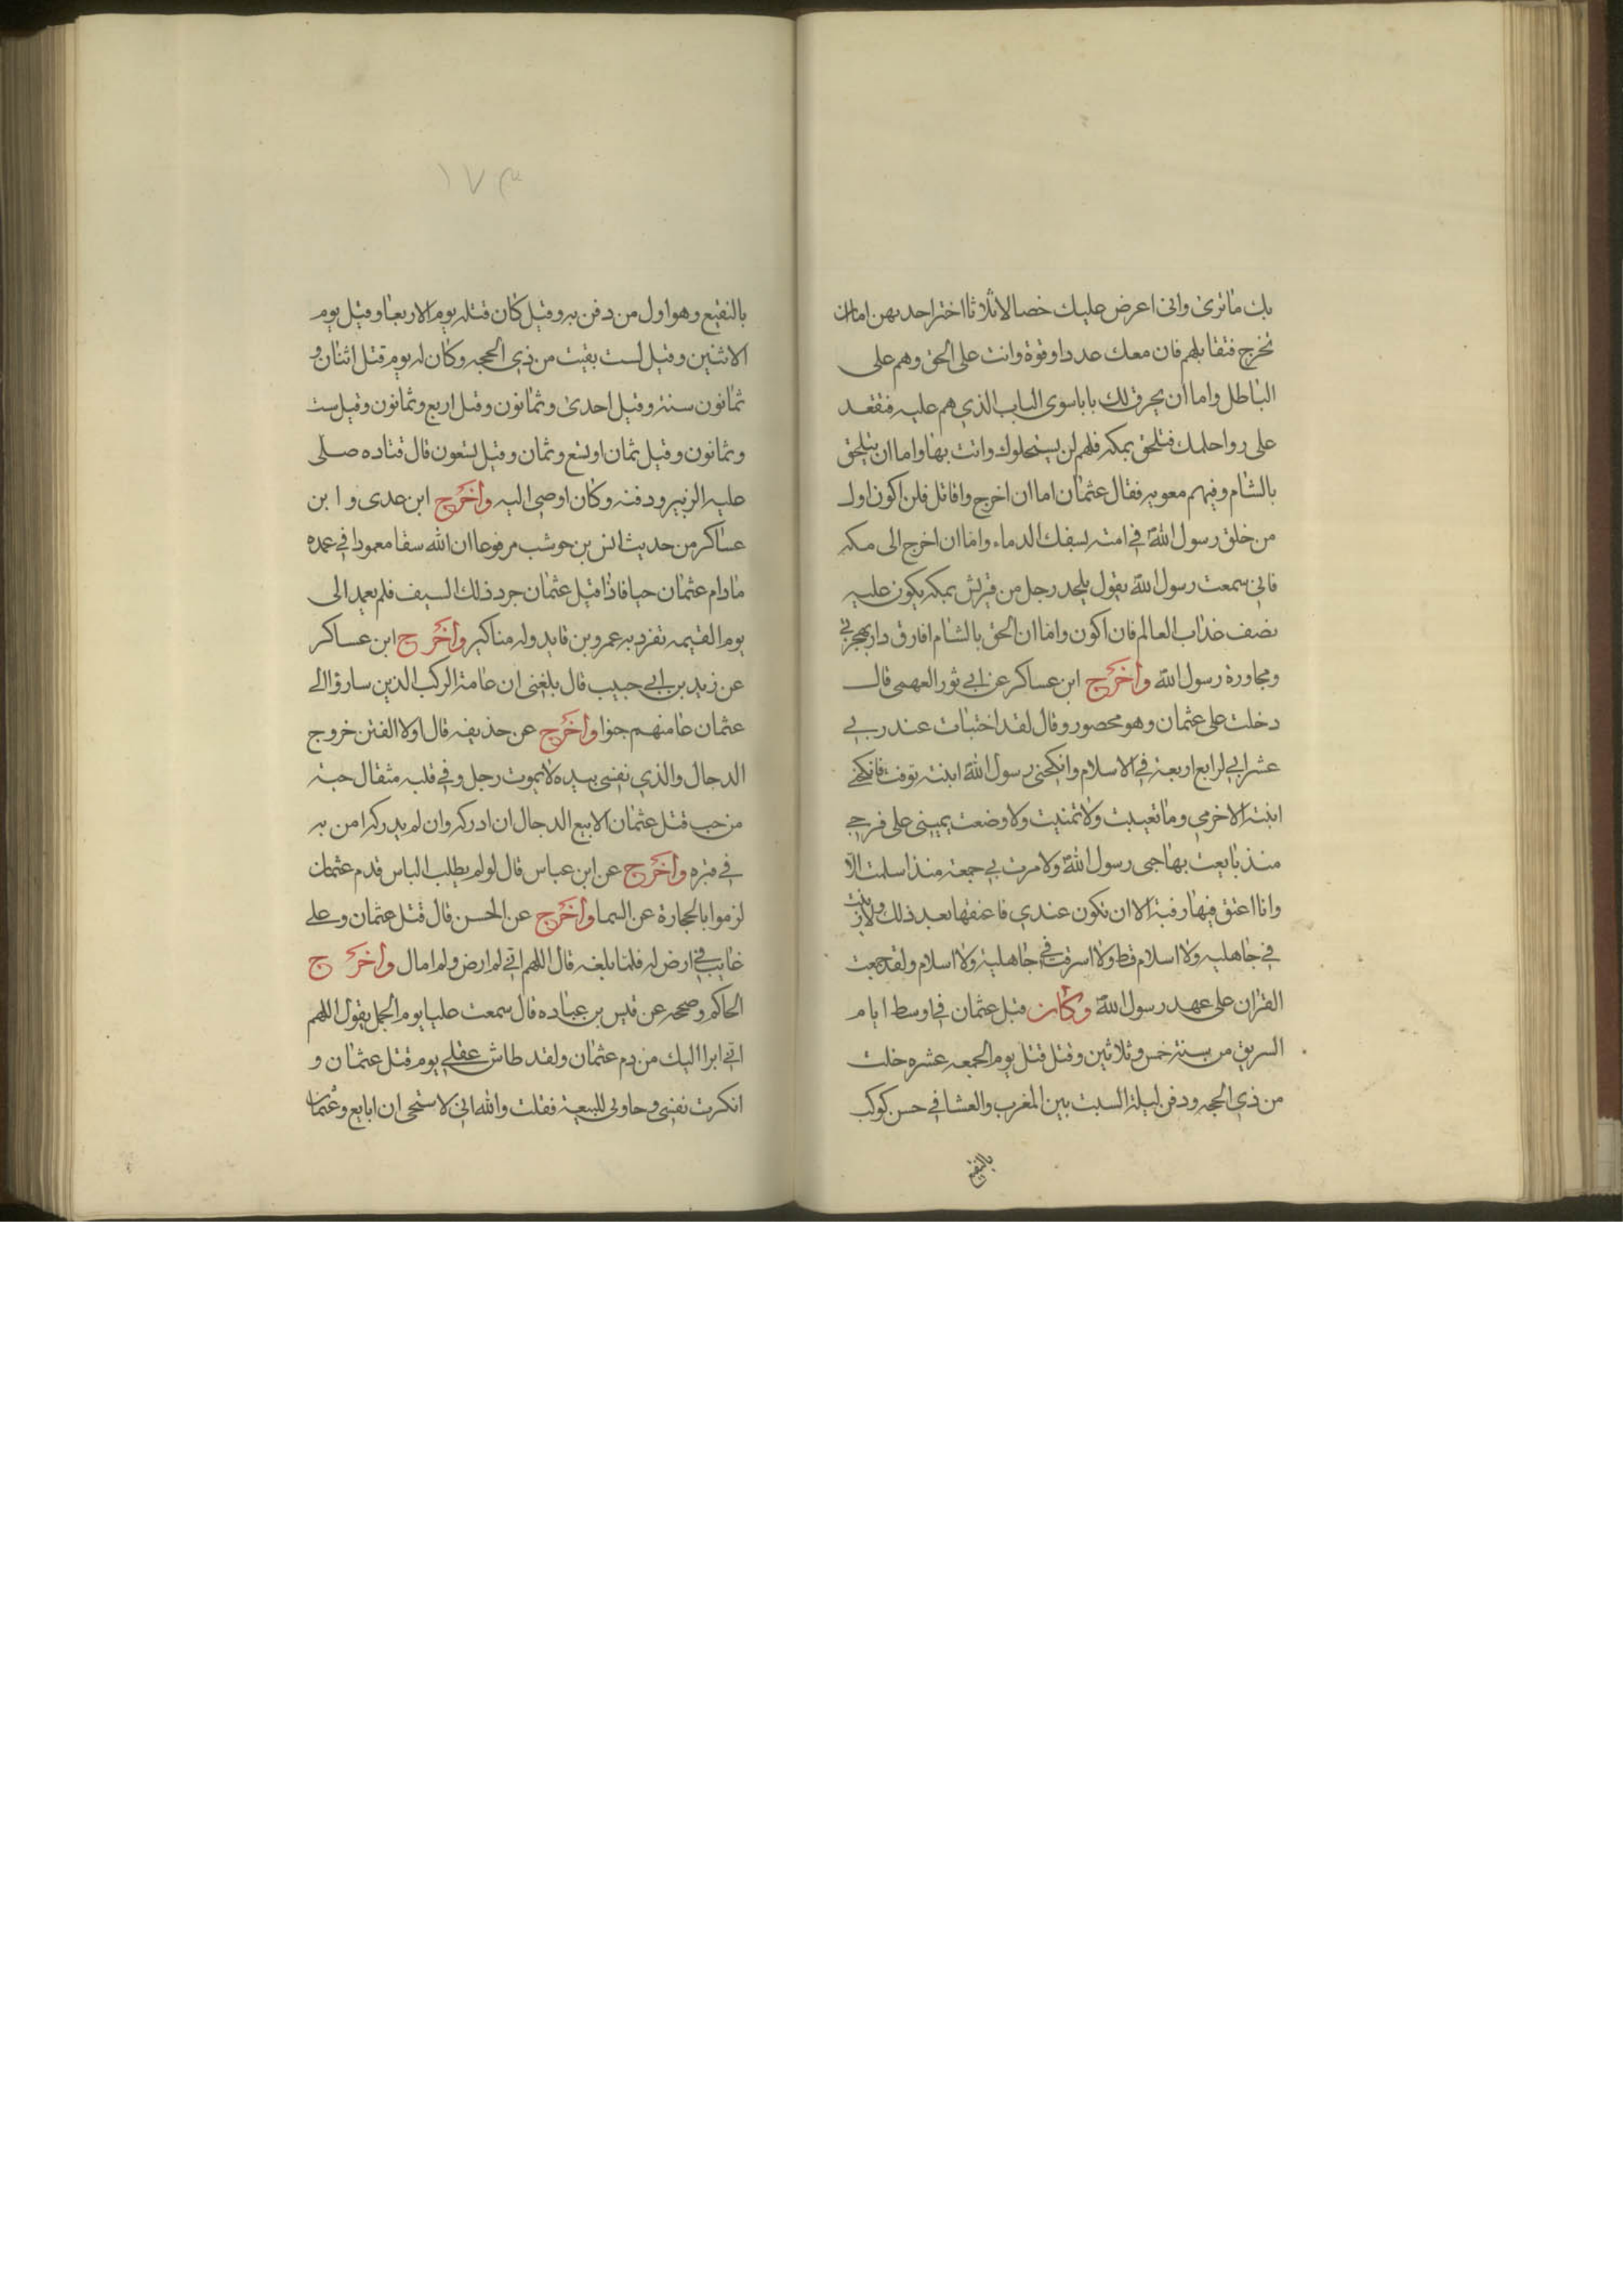 بك ما ترى وانى اعرض عليك خصالا ثلاثا اختر احديهن اما ان
تخرج فتقاتلهم فان معك عددا وقوة وانت على الحق وهم على
الباطل واما ان يحرق لك بابا سوى الباب الذي هم عليه فتقعد
على رواحلك فتلحق بمكه فلهم لن يستحلوك وانت بها واما ان تلحق
بالشام وفيهم معويه فقال عثمان اما ان اخرج واقاتل فلن اكون اول
من خلق رسول الله في امته بسفك الدماء واما ان اخرج الى مكه
فانى سمعت رسول الله يقول يلحد رجل من قريش بمكه يكون عليه
نصف عذاب العالم فان اكون واما ان الحق بالشام افارق دار هجرتي
ومجاورة رسول الله واخرج ابن عساكر عن ابي ثور الفهمى قال
دخلت على عثمان وهو محصور وقال لقد اختبات عند ربي
عشرا اني لرابع اربعة في الاسلام وانكحنى رسول الله ابنته توفت فانكحني
ابنته الاخرى وما تعييت ولا تمنيت ولا وضعت يمينى على فرجي
منذ بايعت بها حبى رسول الله ولا مرت بي جمعة منذ اسلمت الا
وانا اعتق فيها رقبة الا ان تكون عندي فاعتقها بعد ذلك ولا زنيت
في جاهليه ولا اسلام قط ولا اسرقت في جاهلية ولا اسلام ولقد جمعت
القران على عهد رسول الله وكان قتل عثمان في اوسط ايام
السريق من سنة خمس وثلاثين وقتل قتل يوم الجمعه عشره خلت
من ذي الحجه ودفن ليلة السبت بين المغرب والعشا في حس كوكب
بالنقيع
١٧٣
بالنقيع وهو اول من دفن به وقيل كان قتله يوم الاربعا وقيل يوم
الاثنين وقيل لست بقيت من ذي الحجه وكان له يوم قتل اثنان و
ثمانون سنة وقيل احدى وثمانون وقيل اربع وثمانون وقيل ست
وثمانون وقيل ثمان او تسع وثمان وقيل تسعون قال قتاده صلى
عليه الزبير ودفنه وكان اوصى اليه واخرج ابن عدى و ابن
عساكر من حديث انس بن حوشب مرفوعا ان الله سفا معمودا في عمده
مادام عثمان حيا فاذا قتل عثمان جرد ذلك السيف فلم يعيد الى
يوم القيمه تفرد به عمرو بن قايد وله مناكير واخرج ابن عساكر
عن زيد بن ابي حبيب قال بلغني ان عامة الركب الذين ساروا الى
عثمان عامتهم جنوا واخرج عن حذيفه قال اولا الفتن خروج
الدجال والذي نفسى بيده لا يموت رجل وفي قلبه مثقال حبة
من حب قتل عثمان الا يبع الدجال ان ادركه وان لم يدركه امن به
في قبره واخرج عن ابن عباس قال لو لم يطلب الباس قدم عثمان
لزموا بالحجارة عن السما واخرج عن الحسن قال قتل عثمان وعلي
غايب في ارض له فلما بلغه قال اللهم اني لم ارض ولم امال واخرج
الحاكم وصححه عن قيس بن عباده قال سمعت عليا يوم الجمل يقول اللهم
اني ابرا اليك من دم عثمان ولقد طاش عقلي يوم قتل عثمان و
انكرت نفسى وحاولى للبيعة فقلت والله انى لاستحى ان ابايع وعثمان